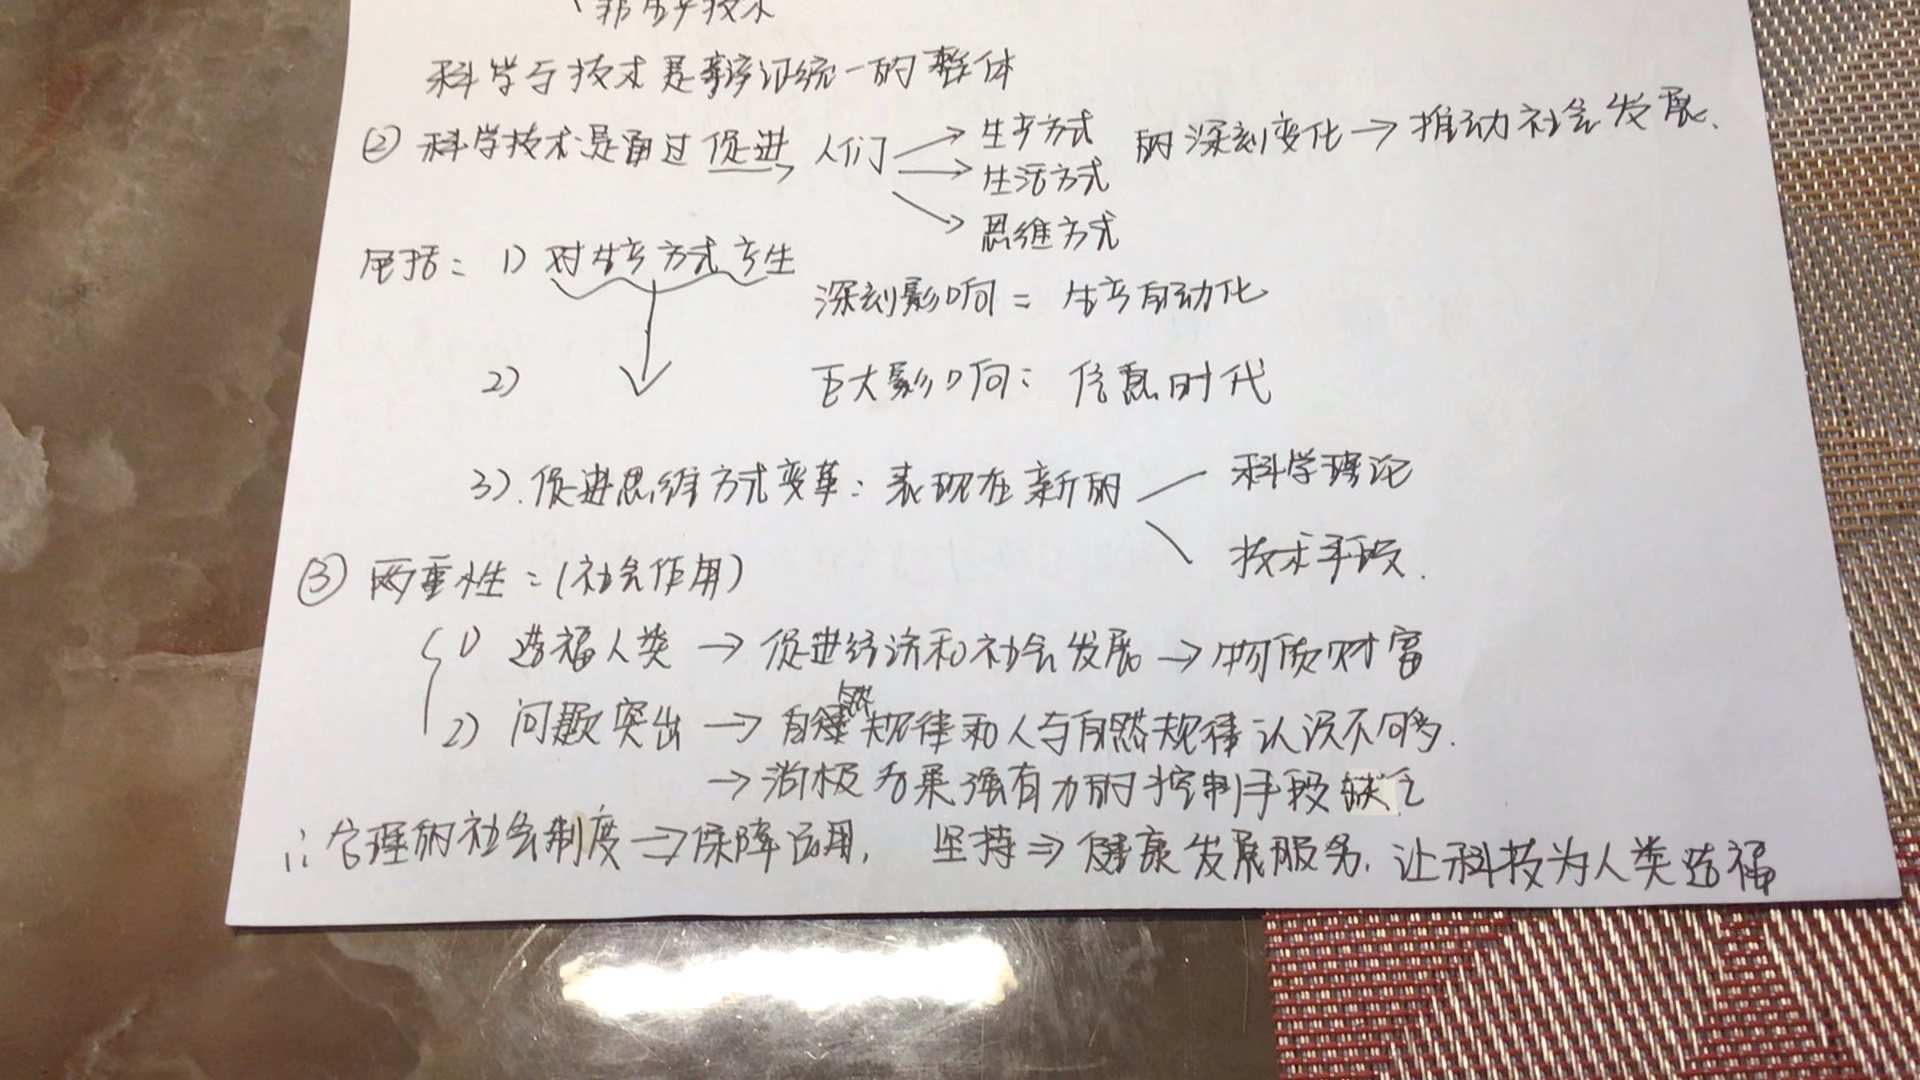 非生产技术
科学与技术是辩证统一的整体
② 科学技术是通过促进 人们 → 生产方式 的深刻变化 → 推动社会发展.
→ 生活方式
→ 思维方式
包括: 1) 对生产方式产生
深刻影响: 生产自动化
2) 巨大影响: 信息时代
3). 促进思维方式变革: 表现在新的 科学理论
技术手段.
③ 两重性: (社会作用)
1) 造福人类 → 促进经济和社会发展 → 物质财富
2) 问题突出 → 自然规律和人与自然规律认识不够.
→ 消极后果强有力的控制手段缺乏
∴ 合理的社会制度 → 保障运用, 坚持 ⇒ 健康发展服务. 让科技为人类造福